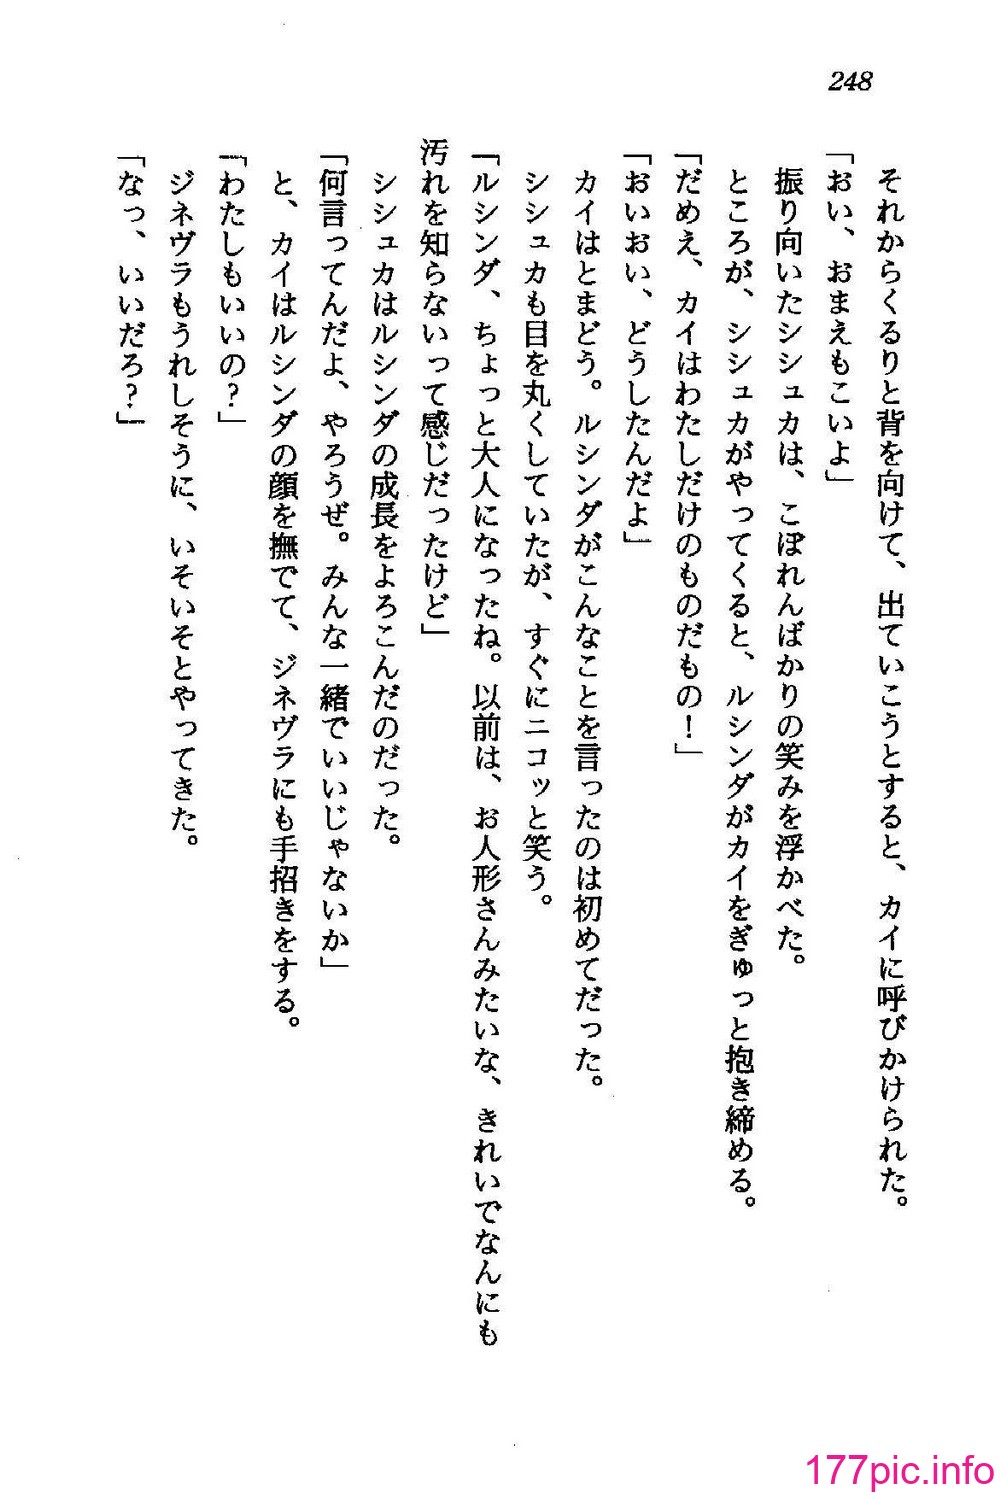 248
それからくるりと背を向けて、出ていこうとすると、カイに呼びかけられた。
「おい、おまえもこいよ」
振り向いたシシュカは、こぼれんばかりの笑みを浮かべた。
ところが、シシュカがやってくると、ルシンダがカイをぎゅっと抱き締める。
「だめえ、カイはわたしだけのものだもの！」
「おいおい、どうしたんだよ」
カイはとまどう。ルシンダがこんなことを言ったのは初めてだった。
シシュカも目を丸くしていたが、すぐにニコッと笑う。
「ルシンダ、ちょっと大人になったね。以前は、お人形さんみたいな、きれいでなんにも
汚れを知らないって感じだったけど」
シシュカはルシンダの成長をよろこんだのだった。
「何言ってんだよ、やろうぜ。みんな一緒でいいじゃないか」
と、カイはルシンダの顔を撫でて、ジネヴラにも手招きをする。
「わたしもいいの？」
ジネヴラもうれしそうに、いそいそとやってきた。
「なっ、いいだろ？」
177pic.info